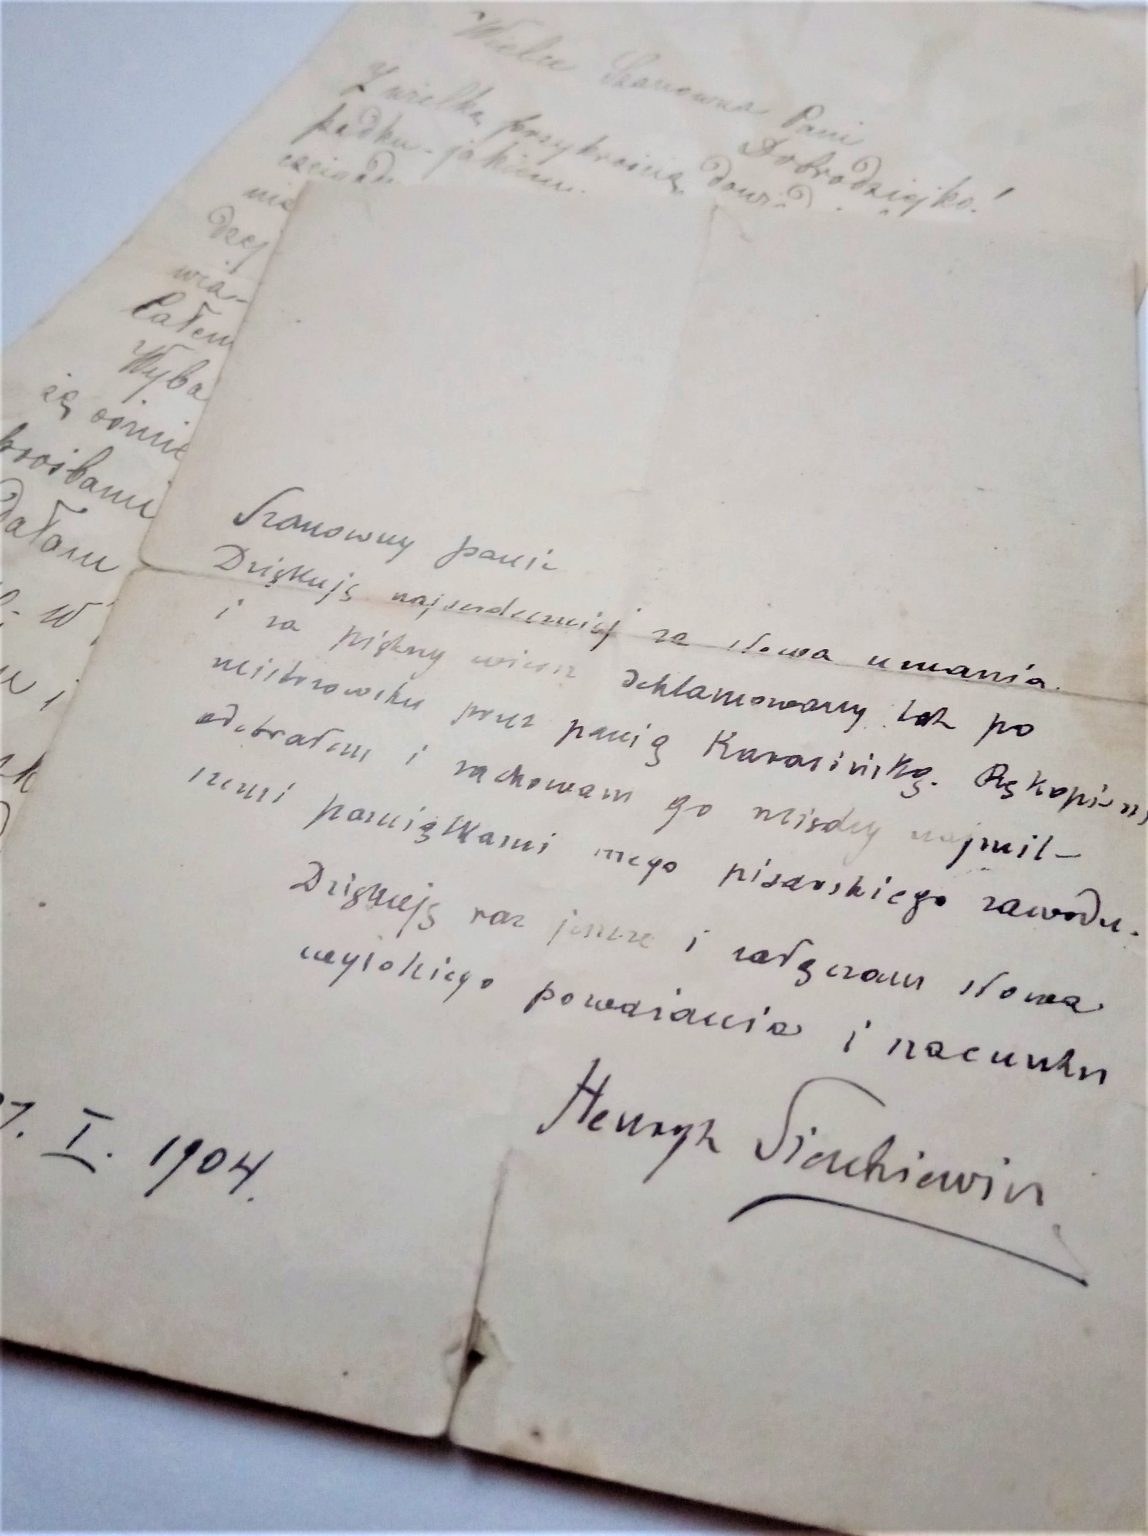 Wielce Szanowna Pani
Dobrodziejko!
Z wielką przykrością
padku jakiemu
nia
dzej
wia-
Całem
Wyba
ośmie
prośbami
dałam
w
i
Szanowny panie
Dziękuję najserdeczniej za słowa uznania
i za piękny wiersz deklamowany tak po
mistrzowsku przez panią Karasińską. Rękopism
odebrałem i zachowam go między najmil-
szemi pamiątkami mego pisarskiego zawodu.
Dziękuję raz jeszcze i załączam słowa
wysokiego poważania i szacunku
Henryk Sienkiewicz
7. I. 1904.